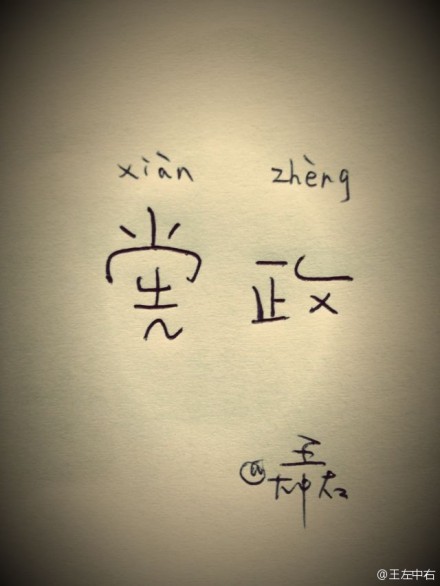 xiàn zhèng
政
@王左中右
@王左中右